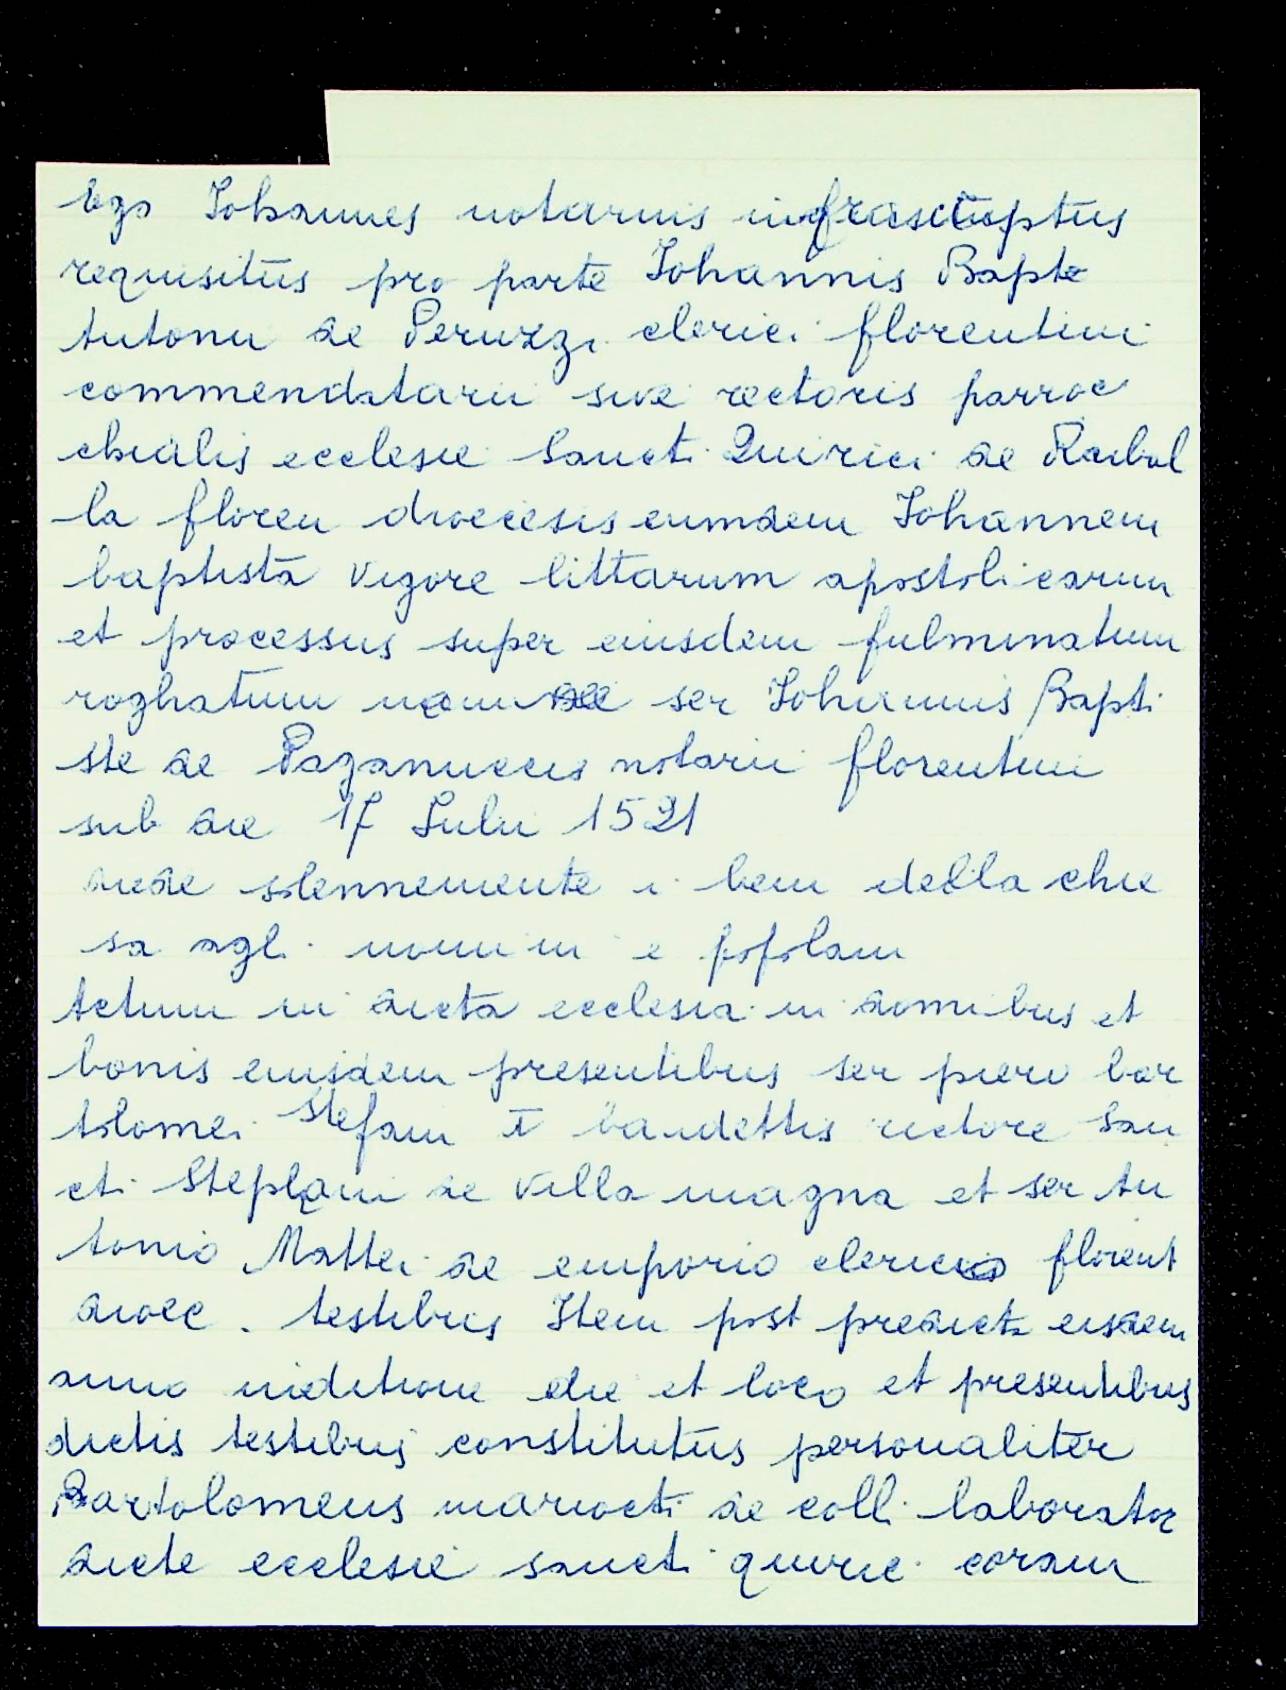 Ego Iohannes notarius infrascriptus
requisitus pro parte Iohannis Bapte
Antonii de Peruzzi clerici florentini
commendatarii sive rectoris parroc
chialis ecclesie Sancti Quirici de
la floren diocesis eumdem Iohannem
baptista vigore litterarum apostolicarum
et processus super eiusdem fulminatum
roghatum ser Iohannis Bapti
ste de Paganuccis notarii florentini
sub die 17 Iulii 1521
diede solennemente i beni della chie
sa agli uomini e popolani
Actum in dicta ecclesia in domibus et
bonis eiusdem presentibus ser piero bar
tolomei Stefani bandettis rectore San
cti Stephani de Villa magna et ser An
tonio Mattei de emporio clerico florent
dioec. testibus Item post predicta eisdem
anno inditione die et loco et presentibus
dictis testibus constitutus personaliter
Bartolomeus mariocti de colli laborator
dicte ecclesie sancti quirici coram